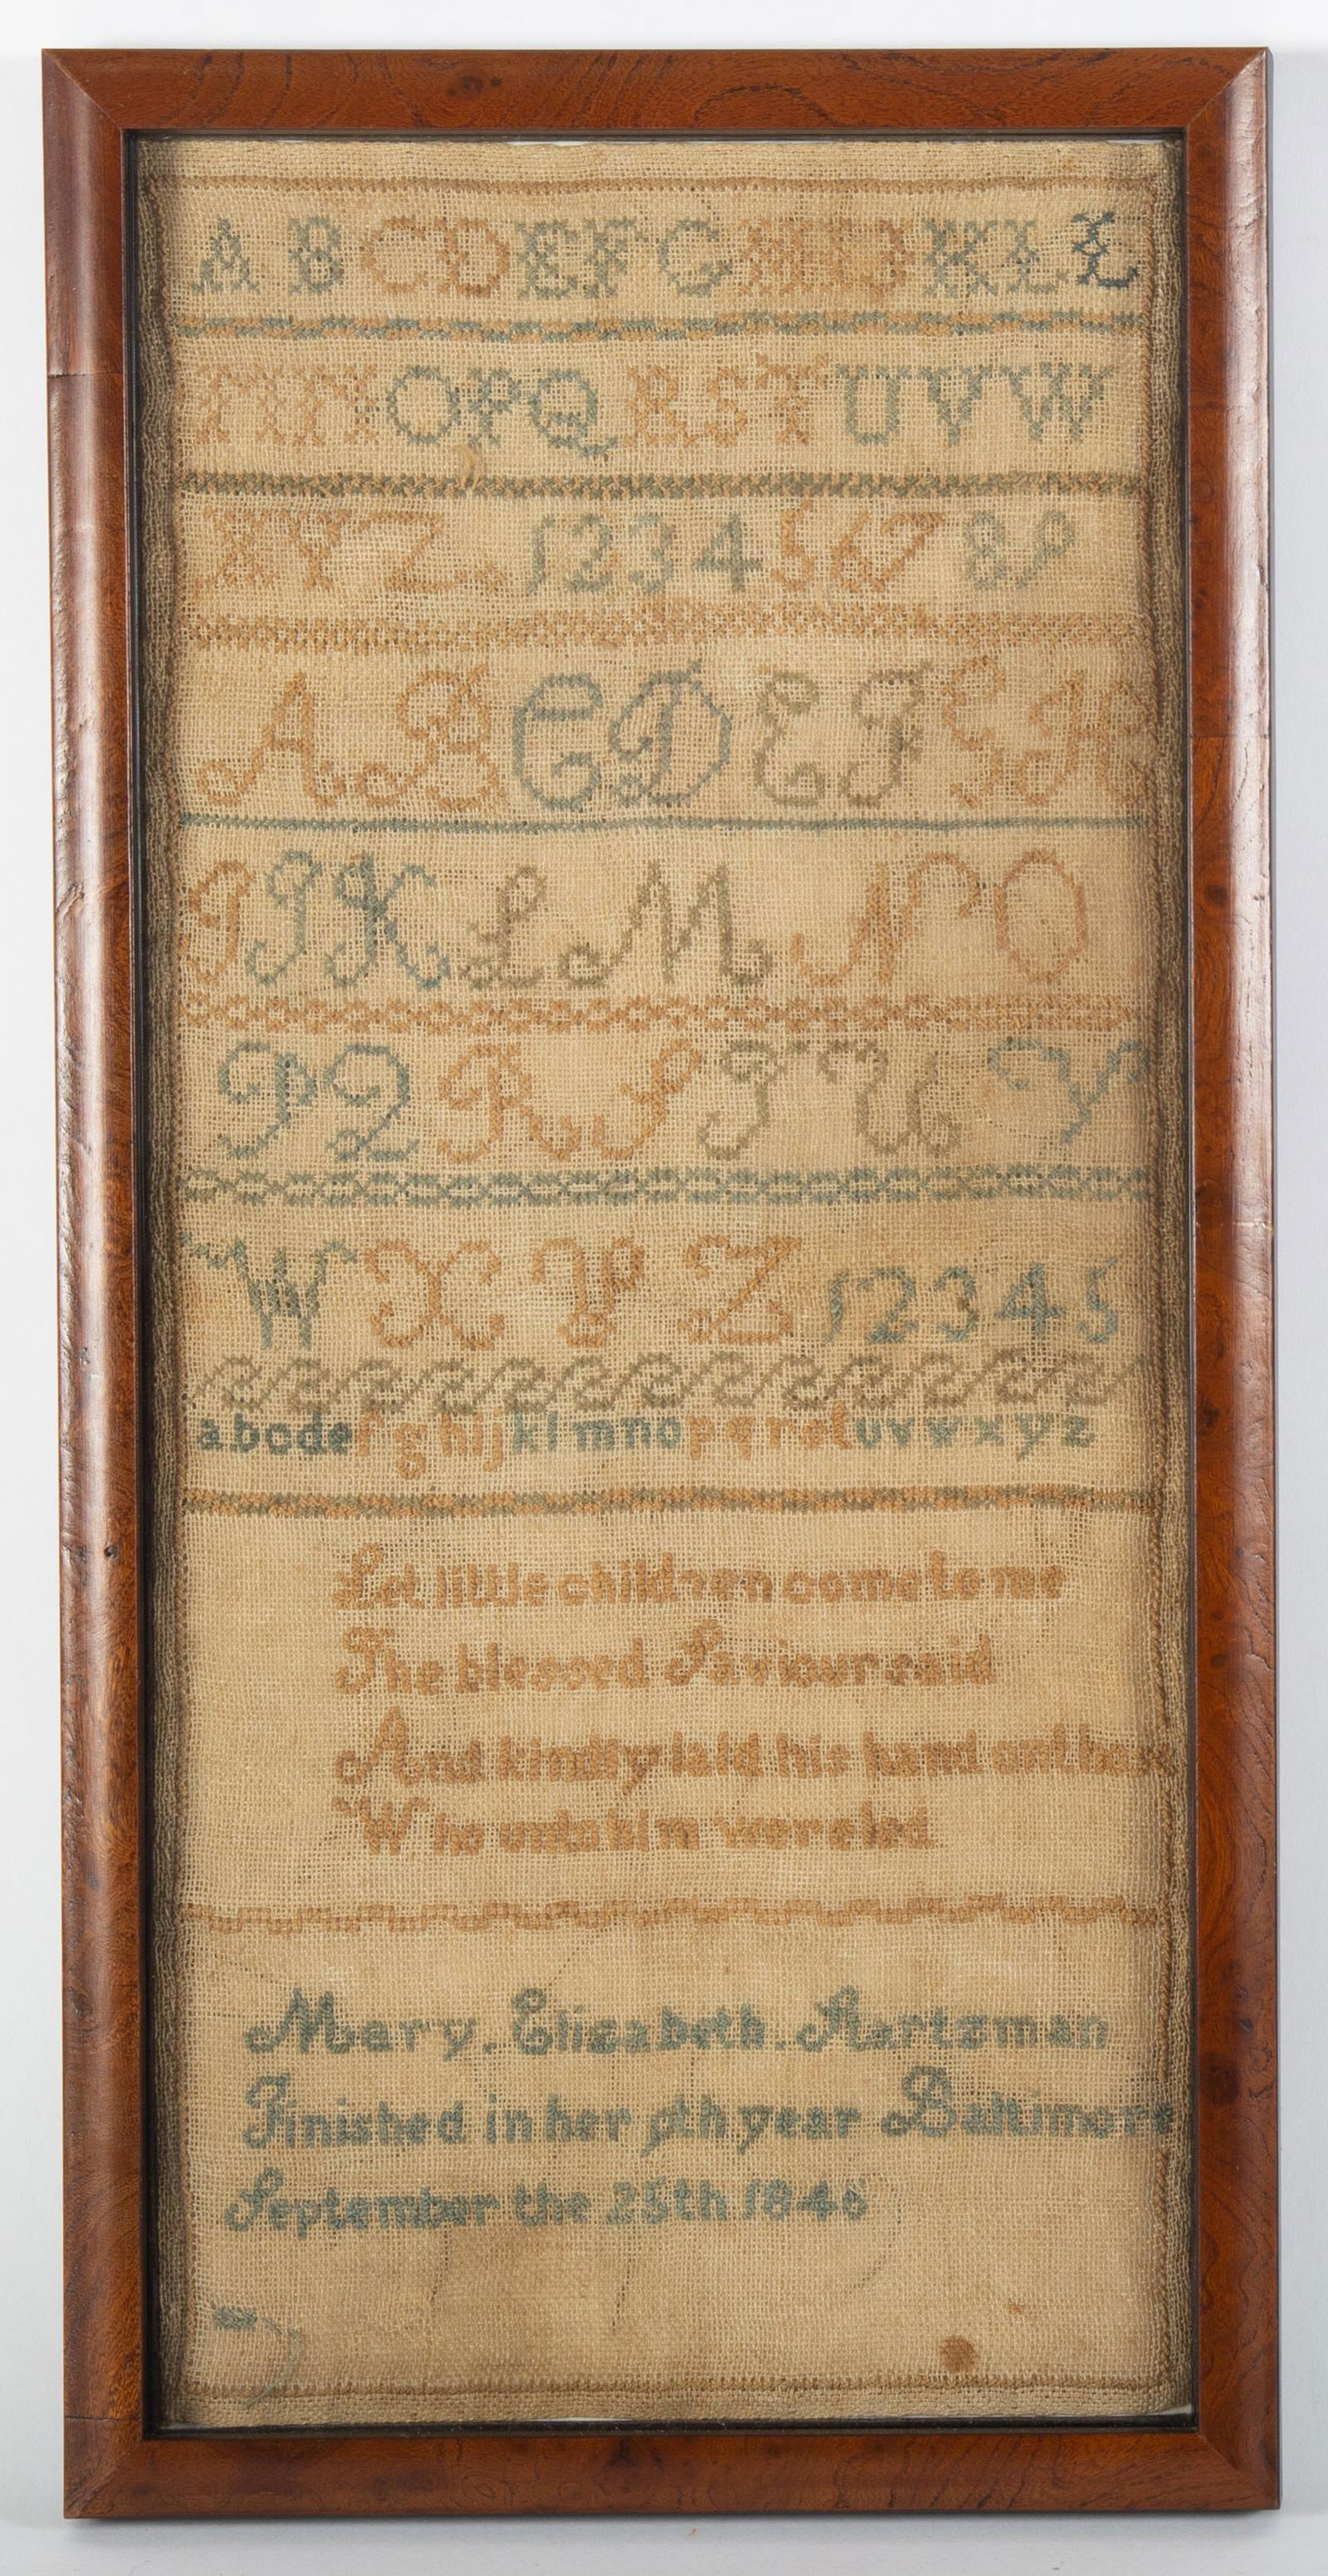 A B C D E F G H I J K L L
M N O P Q R S T U V W
X Y Z. 1 2 3 4 5 6 7 8 9
A B C D E F G H
I J K L M N O
P Q R S T U V
W X Y Z 1 2 3 4 5
a b c d e f g h i j k l m n o p q r s t u v w x y z
Let little children come to me
The blessed Saviour said
And kindly laid his hand on those
Who unto him were led
Mary. Elizabeth. Hartzman
Finished in her 9th year Baltimore
September the 25th 1846